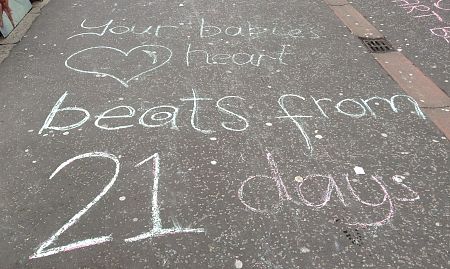 Your babies
heart
beats from
21 days